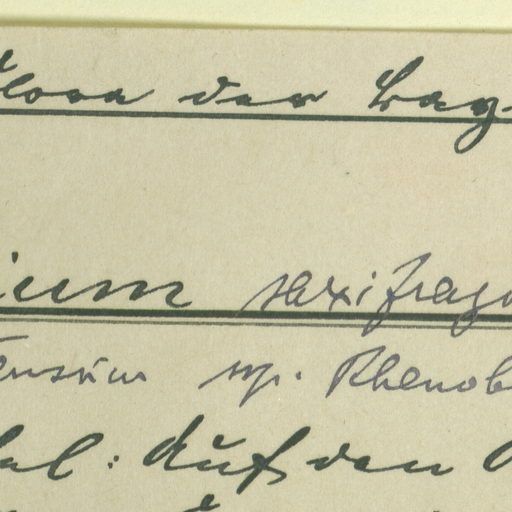 Flora der Bag
ium saxifrag
ensium sp. Rhenob
al: Auf den